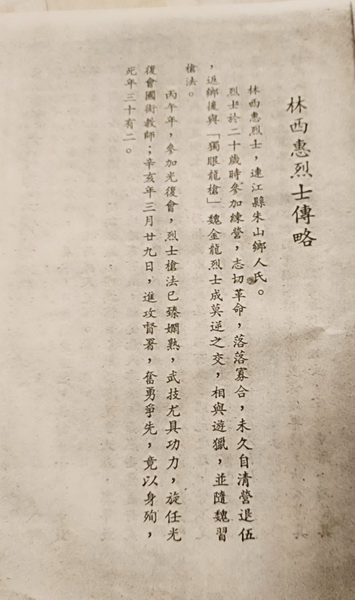 林西惠烈士傳略
林西惠烈士，連江縣朱山鄉人氏。
烈士於二十歲時參加練營，志切革命，落落寡合，未久自清營退伍
，返鄉後與「獨眼龍槍」魏金龍烈士成莫逆之交，相與遊獵，並隨魏習
槍法。
丙午年，參加光復會，烈士槍法已臻嫻熟，武技尤具功力，旋任光
復會國術教師；辛亥年三月廿九日，進攻督署，奮勇爭先，竟以身殉，
死年三十有二。